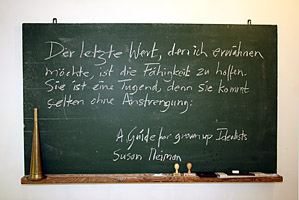 Der letzte Wert, den ich erwähnen
möchte, ist die Fähigkeit zu hoffen.
Sie ist eine Tugend, denn sie kommt
selten ohne Anstrengung.
A Guide for grown up Idealists
Susan Neiman